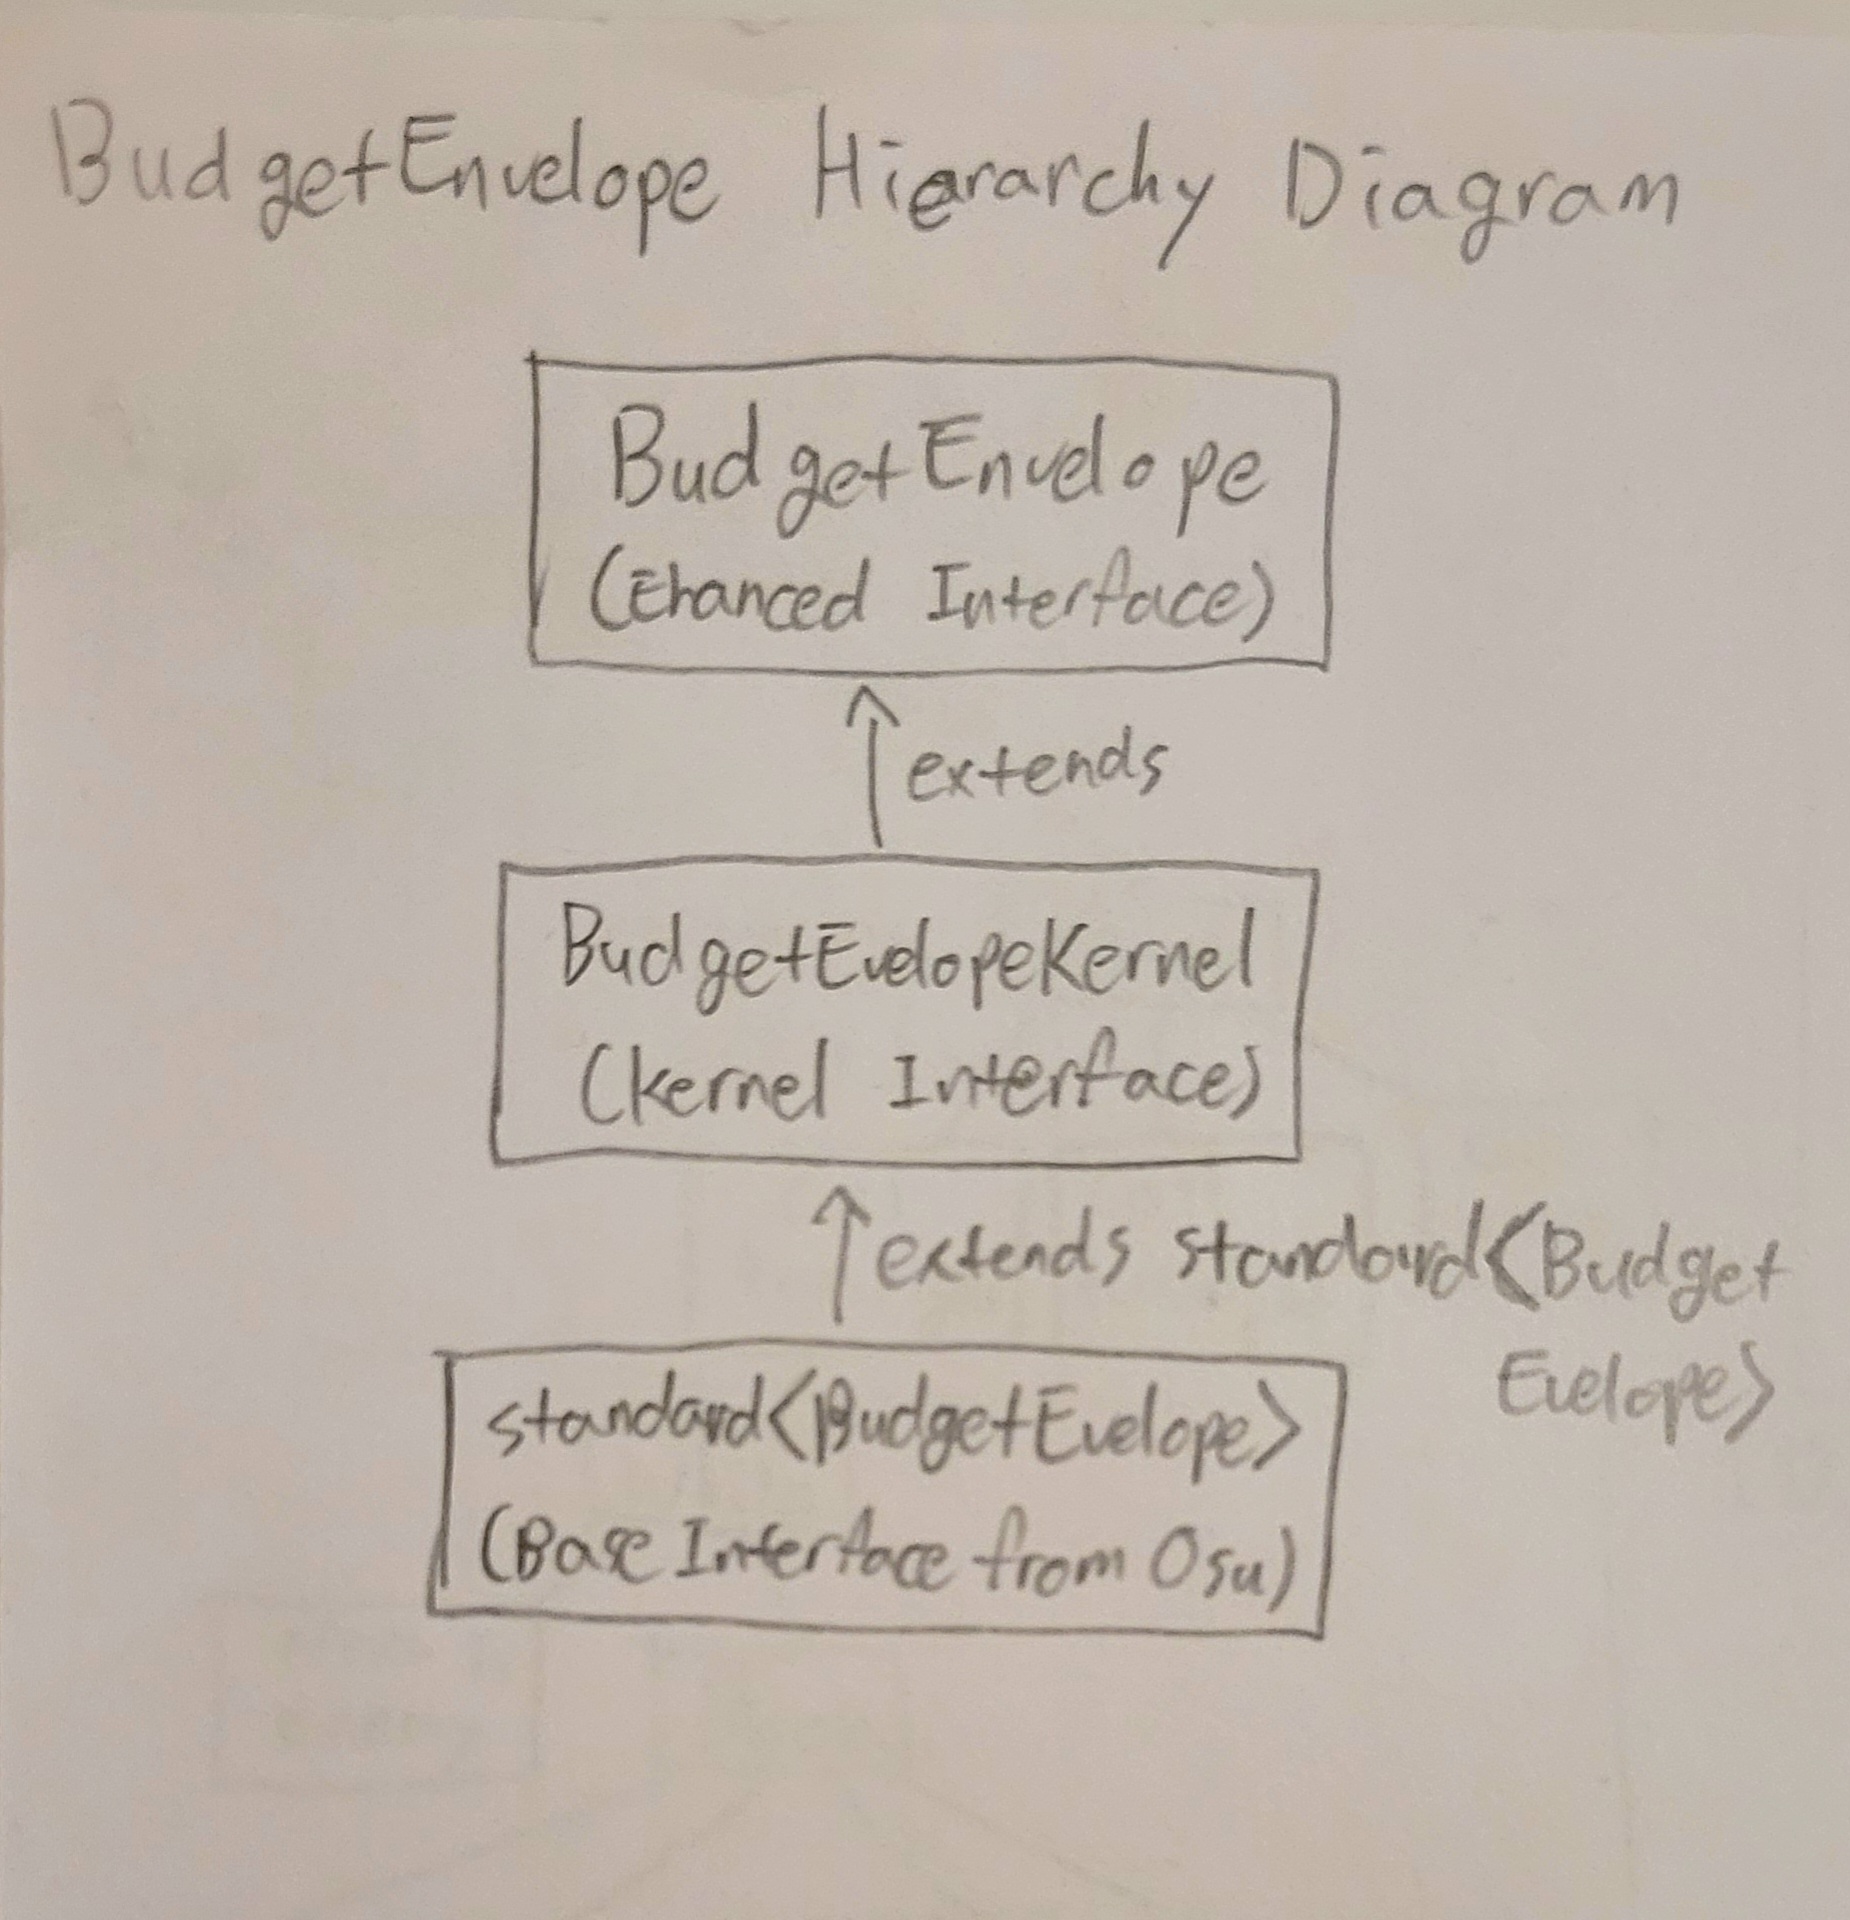 BudgetEnvelope Hierarchy Diagram
BudgetEnvelope
(Ehanced Interface)
extends
BudgetEvelopeKernel
(kernel Interface)
extends standard<Budget
Evelope>
standard<BudgetEvelope>
(Base Interface from Osu)